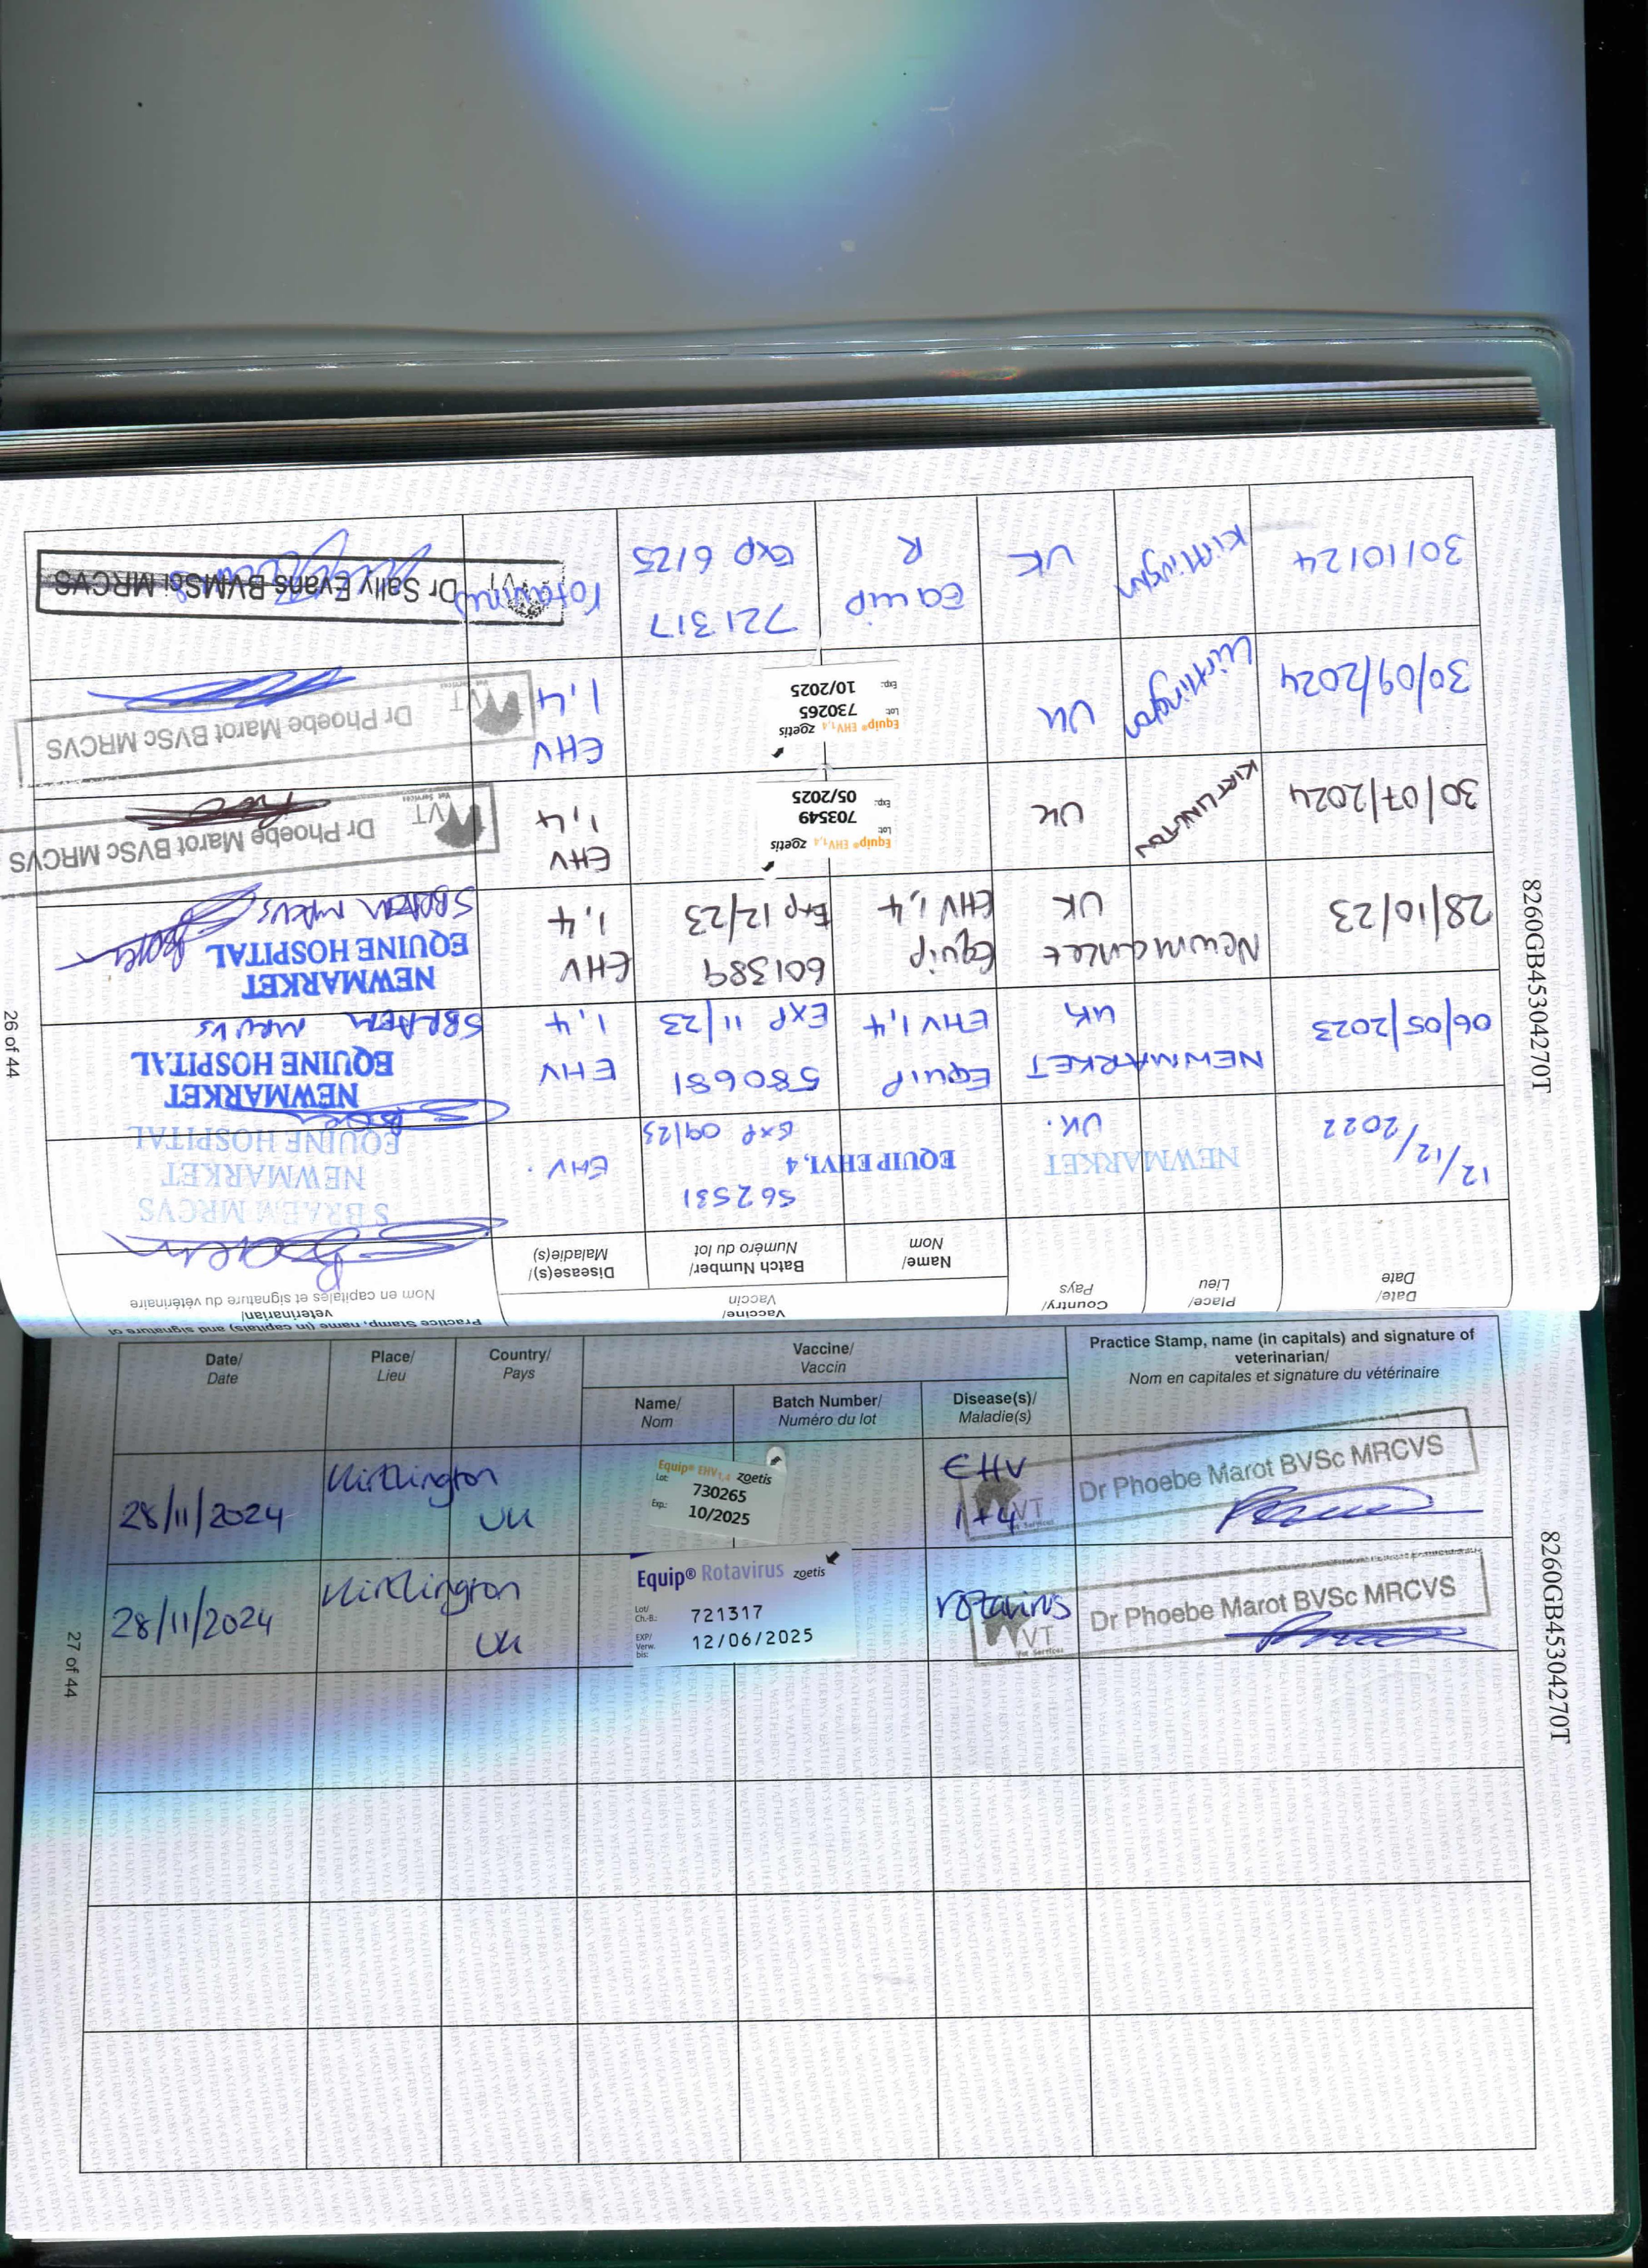 Date/
Date
Place/
Lieu
Country/
Pays
Vaccine/
Vaccin
Practice Stamp, name (in capitals) and signature of
veterinarian/
Nom en capitales et signature du vétérinaire
Name/
Nom
Batch Number/
Numéro du lot
Disease(s)/
Maladie(s)
12/12/2022
NEWMARKET
UK.
EQUIP EHV1,4
562531
Exp 09/23
EHV.
S BRAEM MRCVS
NEWMARKET
EQUINE HOSPITAL
06/05/2023
NEWMARKET
UK
EQUIP
EHV 1,4
580681
EXP 11/23
EHV
1,4
NEWMARKET
EQUINE HOSPITAL
SBRAEM MRCVS
28/10/23
Newmarket
UK
Equip
EHV 1,4
601389
Exp 12/23
EHV
1,4
NEWMARKET
EQUINE HOSPITAL
SBRAEM MRCVS
30/07/2024
KIRTLINGTON
UK
Equip® EHV1,4 zoetis
Lot: 703549
Exp: 05/2025
EHV
1,4
VT
Vet Services
Dr Phoebe Marot BVSc MRCVS
30/09/2024
Kirtlington
UK
Equip® EHV1,4 zoetis
Lot: 730265
Exp: 10/2025
EHV
1,4
VT
Vet Services
Dr Phoebe Marot BVSc MRCVS
30/10/24
Kirtlington
UK
Equip
R
721317
Exp 6/25
rotavirus
Dr Sally Evans BVMSci MRCVS
26 of 44
8260GB45304270T
Date/
Date
Place/
Lieu
Country/
Pays
Vaccine/
Vaccin
Practice Stamp, name (in capitals) and signature of
veterinarian/
Nom en capitales et signature du vétérinaire
Name/
Nom
Batch Number/
Numéro du lot
Disease(s)/
Maladie(s)
28/11/2024
Kirtlington
UK
Equip® EHV1,4 zoetis
Lot: 730265
Exp: 10/2025
EHV
1+4
VT
Vet Services
Dr Phoebe Marot BVSc MRCVS
28/11/2024
Kirtlington
UK
Equip® Rotavirus zoetis
Lot/
Ch.-B.: 721317
EXP/
Verw.
bis: 12/06/2025
rotavirus
VT
Vet Services
Dr Phoebe Marot BVSc MRCVS
27 of 44
8260GB45304270T